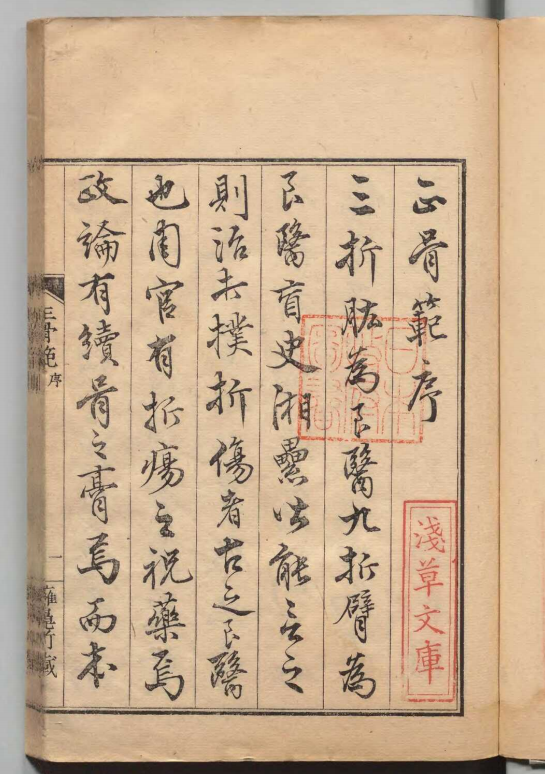 正骨範序
三折肱為良醫九折臂為
良醫盲史湘纍皆能言之
則治夫撲折傷者古之良醫
也周官有折瘍之祝藥焉
政論有續骨之膏焉而本
日本
淺草文庫
正骨範
序
一